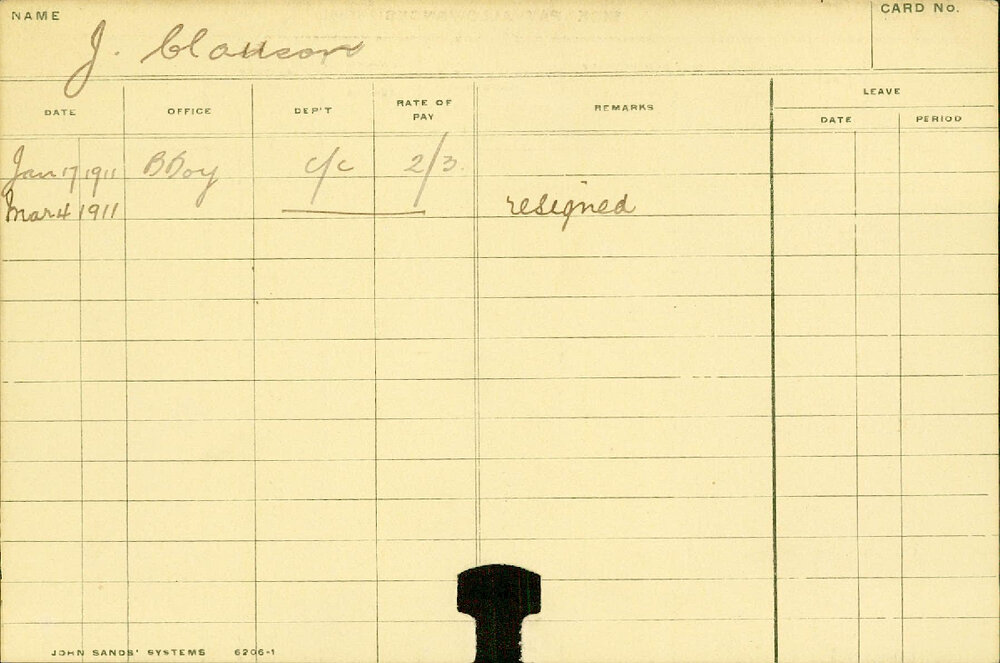 NAME J. Clauson CARD No.
DATE OFFICE DEP'T RATE OF PAY REMARKS LEAVE
DATE PERIOD
Jan 17 1911 BBoy c/c 2/3
Mar 4 1911 resigned
JOHN SANDS' SYSTEMS 6206-1